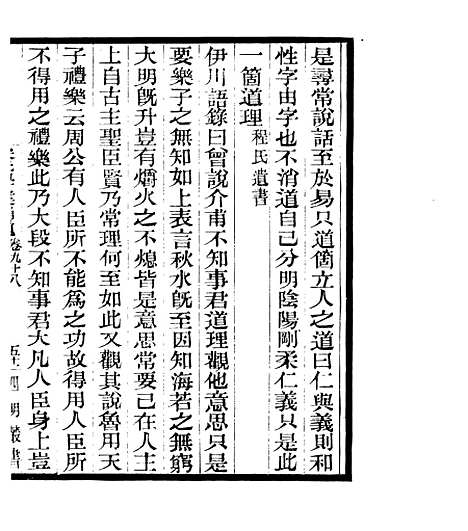 是尋常說話至於易只道箇立人之道曰仁與義則和
性字由字也不消道自己分明陰陽剛柔仁義只是此
一箇道理程氏遺書
伊川語錄曰曾說介甫不知事君道理觀他意思只是
要樂子之無知如上表言秋水旣至因知海若之無窮
大明旣升豈有爝火之不熄皆是意思常要己在人主
上自古主聖臣賢乃常理何至如此又觀其說魯用天
子禮樂云周公有人臣所不能爲之功故得用人臣所
不得用之禮樂此乃大段不知事君大凡人臣身上豈
卷九十八
四明叢書